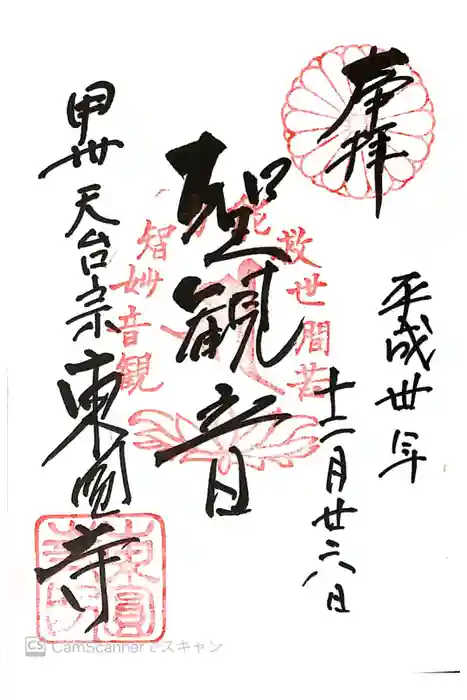 奉拝
平成卅年
十二月廿六日
聖観音
観音妙智力能救世間苦
甲州 天台宗 東圓寺
CS CamScannerでスキャン